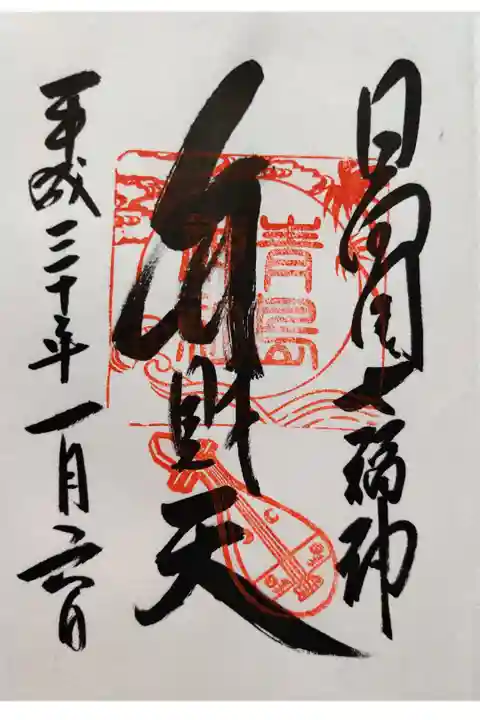 日向国七福神
弁財天
平成三十年一月六日
青島